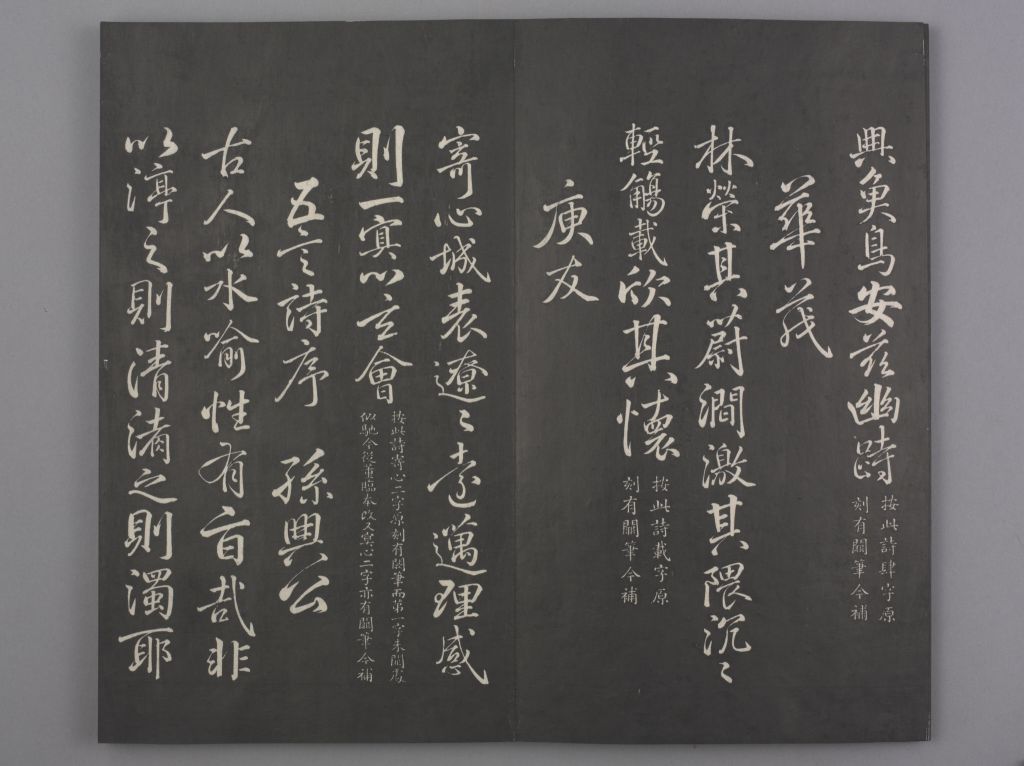 興魚鳥安茲幽跱
按此詩肆字原
刻有闕筆今補
華茂
林榮其蔚澗激其隈沉〻
輕觴載欣其懷
按此詩載字原
刻有闕筆今補
庾友
寄心域表遼〻遠邁理感
則一冥以玄會
按此詩心二字原刻有闕筆而第一字未闕處
似馳今從董臨本改又寄心二字亦有闕筆今補
五言詩序 孫興公
古人以水喻性有旨哉非
以渟之則清淆之則濁耶